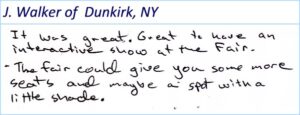 J. Walker of Dunkirk, NY
It was great. Great to have an
interactive show at the Fair.
- The fair could give you some more
seats and maybe a spot with a
little shade.